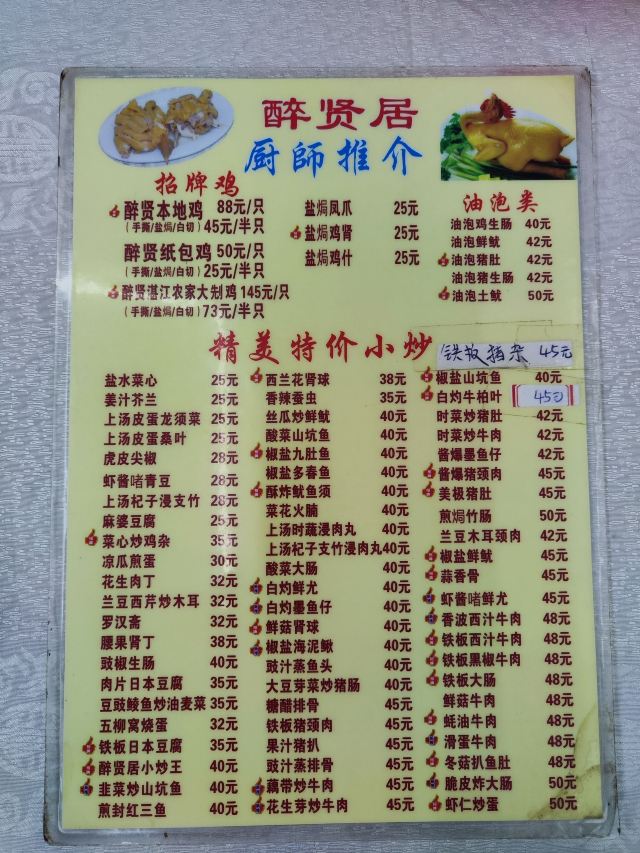 醉贤居
厨師推介
招牌鸡
醉贤本地鸡 88元/只
(手撕/盐焗/白切) 45元/半只
醉贤纸包鸡 50元/只
(手撕/盐焗/白切) 25元/半只
醉贤湛江农家大刬鸡 145元/只
(手撕/盐焗/白切) 73元/半只
盐焗凤爪 25元
盐焗鸡肾 25元
盐焗鸡什 25元
油泡类
油泡鸡生肠 40元
油泡鲜鱿 42元
油泡猪肚 42元
油泡猪生肠 42元
油泡土鱿 50元
精美特价小炒
铁板猪杂 45元
盐水菜心 25元
姜汁芥兰 25元
上汤皮蛋龙须菜 25元
上汤皮蛋桑叶 25元
虎皮尖椒 28元
虾酱啫青豆 28元
上汤杞子浸支竹 28元
麻婆豆腐 25元
菜心炒鸡杂 35元
凉瓜煎蛋 30元
花生肉丁 32元
兰豆西芹炒木耳 32元
罗汉斋 32元
腰果肾丁 38元
豉椒生肠 40元
肉片日本豆腐 35元
豆豉鲮鱼炒油麦菜 35元
五柳窝烧蛋 32元
铁板日本豆腐 35元
醉贤居小炒王 40元
韭菜炒山坑鱼 40元
煎封红三鱼 40元
西兰花肾球 38元
香辣蚕虫 35元
丝瓜炒鲜鱿 40元
酸菜山坑鱼 40元
椒盐九肚鱼 40元
椒盐多春鱼 40元
酥炸鱿鱼须 40元
菜花火腩 40元
上汤时蔬浸肉丸 40元
上汤杞子支竹浸肉丸 40元
酸菜大肠 40元
白灼鲜尤 40元
白灼墨鱼仔 40元
鲜菇肾球 40元
椒盐海泥鳅 40元
豉汁蒸鱼头 40元
大豆芽菜炒猪肠 40元
糖醋排骨 40元
铁板猪颈肉 45元
果汁猪扒 45元
豉汁蒸排骨 45元
藕带炒牛肉 45元
花生芽炒牛肉 45元
椒盐山坑鱼 40元
白灼牛柏叶 45元
时菜炒猪肚 42元
时菜炒牛肉 42元
酱爆墨鱼仔 42元
酱爆猪颈肉 45元
美极猪肚 45元
煎焗竹肠 50元
兰豆木耳颈肉 42元
椒盐鲜鱿 45元
蒜香骨 45元
虾酱啫鲜尤 45元
香波西汁牛肉 48元
铁板西汁牛肉 48元
铁板黑椒牛肉 48元
铁板大肠 48元
鲜菇牛肉 48元
蚝油牛肉 48元
滑蛋牛肉 48元
冬菇扒鱼肚 48元
脆皮炸大肠 50元
虾仁炒蛋 50元